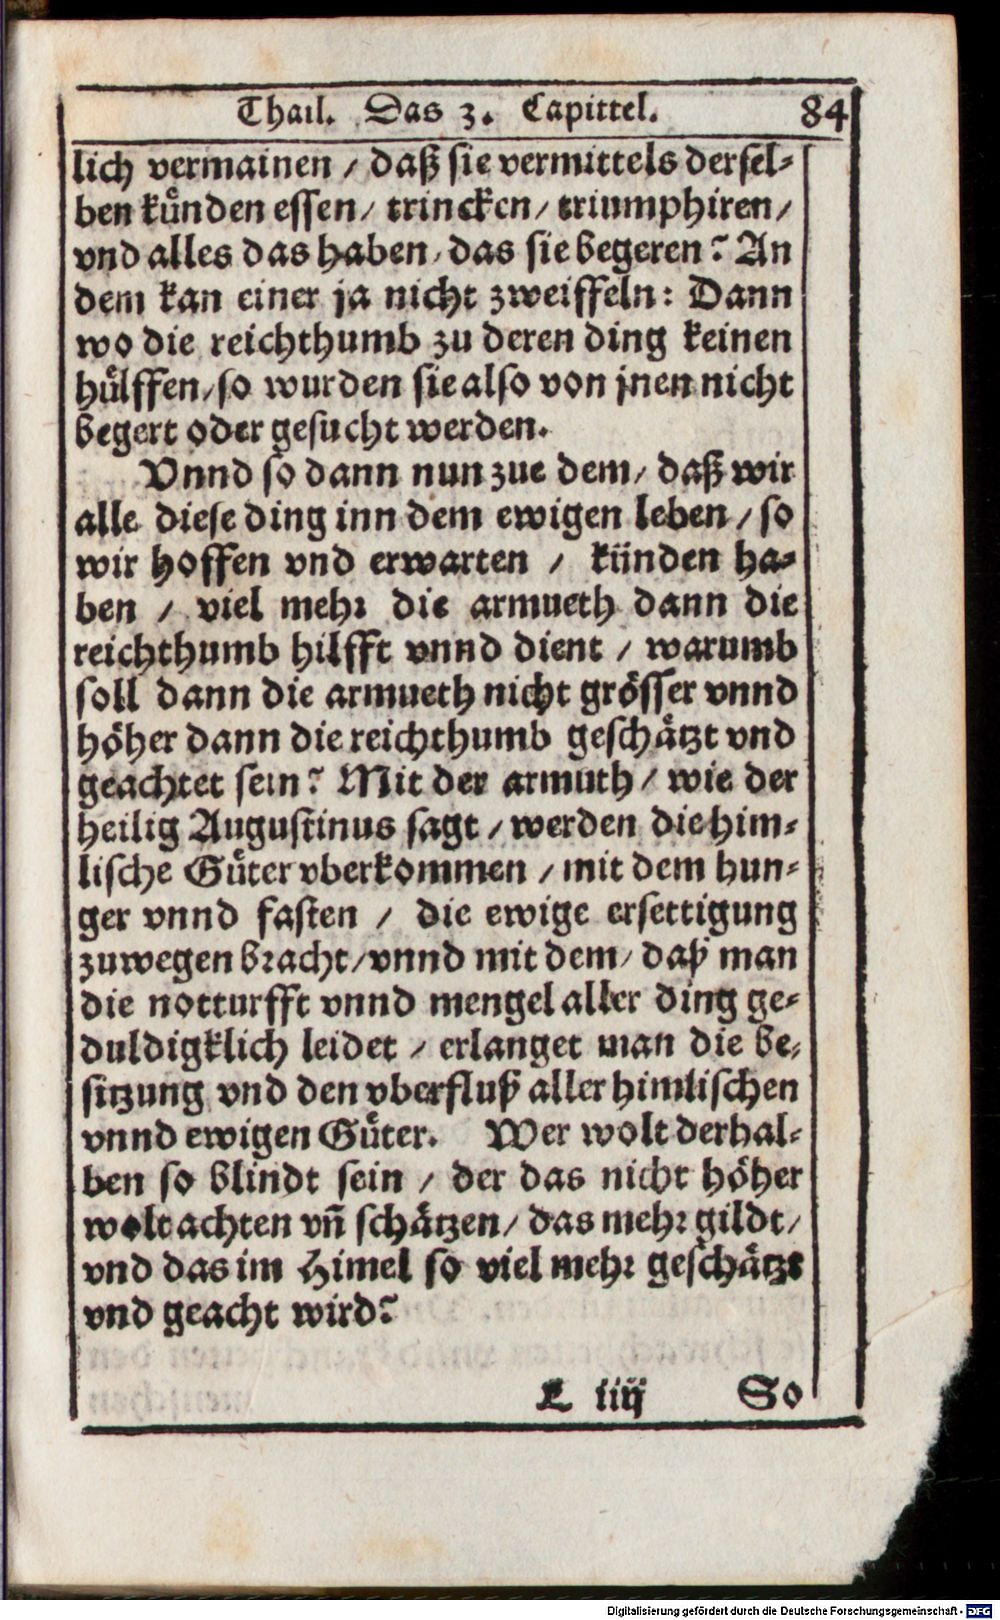 Thail. Das 3. Capittel. 84
lich vermainen / daß sie vermittels dersel-
ben künden essen / trincken / triumphiren /
vnd alles das haben / das sie begeren? An
dem kan einer ja nicht zweiffeln: Dann
wo die reichthumb zu deren ding keinen
hülffen / so wurden sie also von jnen nicht
begert oder gesucht werden.
Vnnd so dann nun zue dem / daß wir
alle diese ding inn dem ewigen leben / so
wir hoffen vnd erwarten / künden ha-
ben / viel mehr die armueth dann die
reichthumb hilfft vnnd dient / warumb
soll dann die armueth nicht grösser vnnd
höher dann die reichthumb geschätzt vnd
geachtet sein? Mit der armuth / wie der
heilig Augustinus sagt / werden die him-
lische Güter vberkommen / mit dem hun-
ger vnnd fasten / die ewige ersettigung
zuwegen bracht / vnnd mit dem / daß man
die notturfft vnnd mengel aller ding ge-
duldigklich leidet / erlanget man die be-
sitzung vnd den vberfluß aller himlischen
vnnd ewigen Güter. Wer wolt derhal-
ben so blindt sein / der das nicht höher
wolt achten vñ schätzen / das mehr gildt /
vnd das im Himel so viel mehr geschätzt
vnd geacht wird?
L iiij So
Digitalisierung gefördert durch die Deutsche Forschungsgemeinschaft - DFG